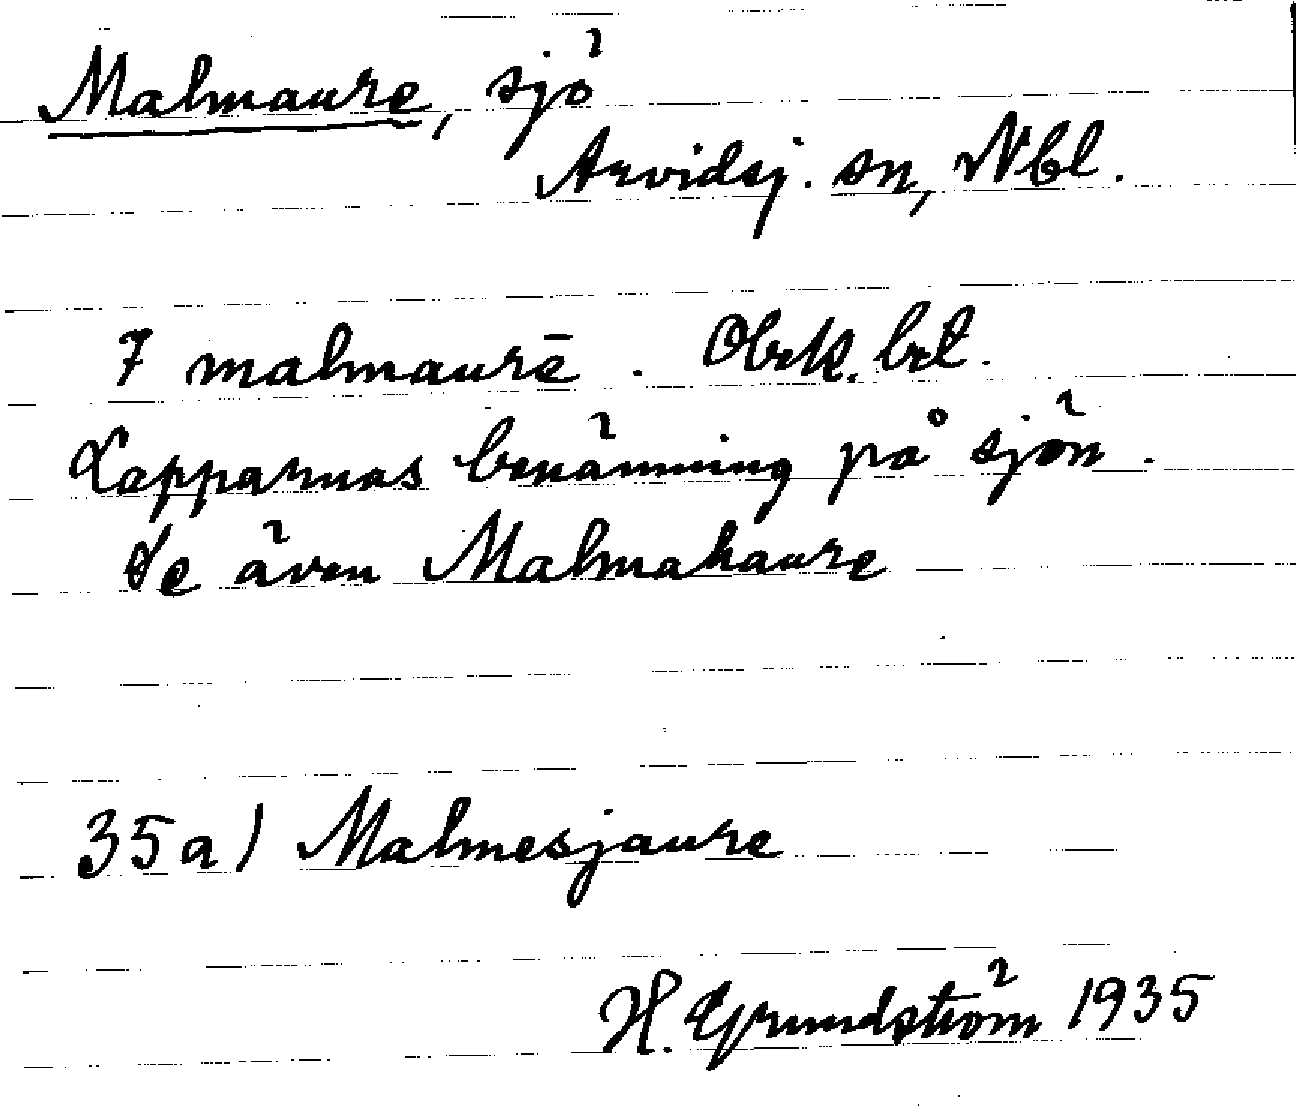 Malmaure, sjö
Arvidsj. sn, Nbl.
7 malmaurē. Obrk. brt.
Lapparnas benämning på sjön.
Se även Malmahaure
35a) Malmesjaure
H. Grundström 1935